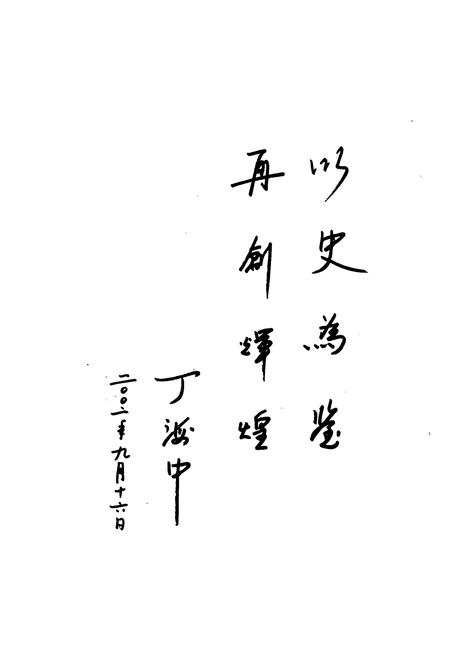 以史為鉴
再創輝煌
丁海中
二〇〇一年九月十六日